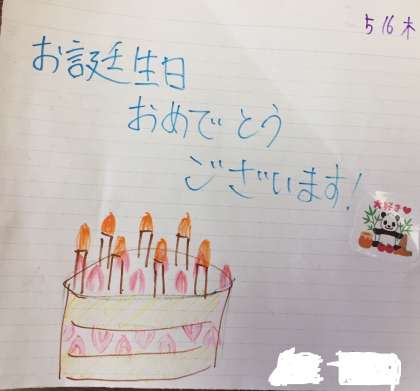 5 16 木
お誕生日
おめでとう
ございます!
大好き